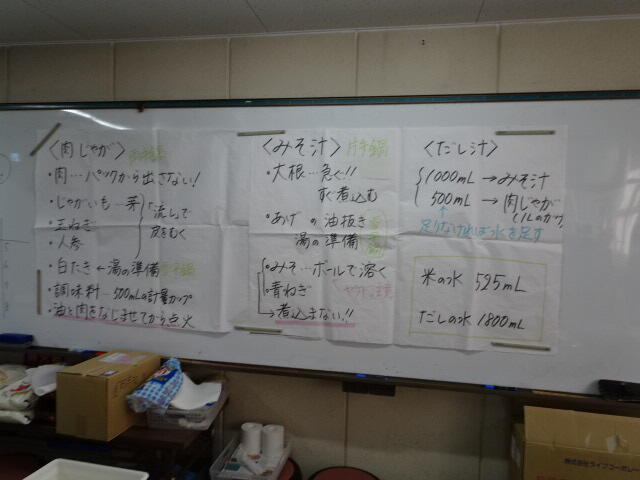 〈肉じゃが〉
・肉…パックから出さない!
・じゃがいも…芽
・玉ねぎ
・人参
「流し」で
皮をむく
・白たき ← 湯の準備
・調味料…500mLの計量カップ
・油と肉をなじませてから点火
〈みそ汁〉片手鍋
・大根…急ぐ!!
すぐ煮込む
・あげ の 油抜き
湯の準備
・みそ…ボールで溶く
・青ねぎ
→煮込まない!!
〈だし汁〉
1000mL → みそ汁
500mL → 肉じゃが
(1Lのカップ)
↑
足りなければ水を足す
米の水 525mL
だしの水 1800mL